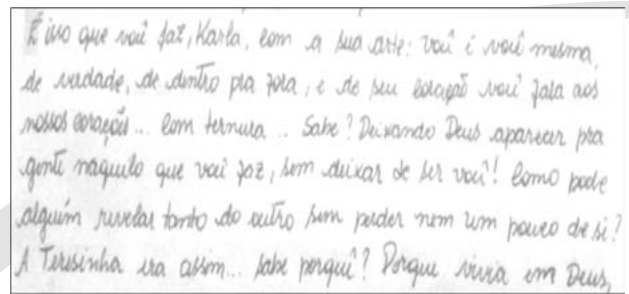 É isso que você faz, Karla, com a sua arte: você é você mesma,
de verdade, de dentro pra fora, e do seu coração você fala aos
nossos corações... Com ternura... Sabe? Deixando Deus aparecer pra
gente naquilo que você faz, sem deixar de ser você! Como pode
alguém revelar tanto do outro sem perder nem um pouco de si?
A Teresinha era assim... sabe porquê? Porque vivia em Deus,